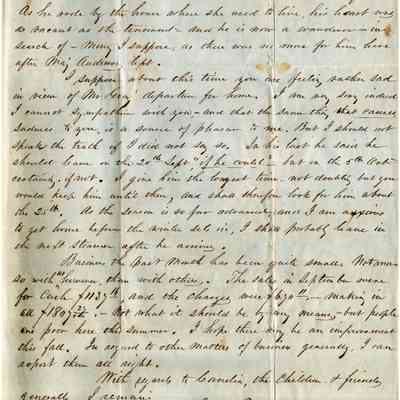 As he rode by the house where she used to live, his heart was
as vacant as the tenement – and he is now a wanderer – in
search of – Mercy I suppose, as there was no more for him here
after Maj Andrews left.
I suppose about this time you are feeling rather sad
in view of Mr departure for home. I am very sorry indeed
I cannot sympathise with you – and that the same thing that causes
sadness to you, is a source of pleasure to me. But I should not
speak the truth if I did not say so. In his last he said he
should leave on the 20th Sept "if he could – but on the 5th Oct
certainly, if not. I give him the longest time, not doubting but you
would keep him until then, and shall therefore look for him about
the 25th. As the season is so far advanced, and I am anxious
to get home before the winter sets in, I shall probably leave in
the next steamer after he arrives.
Business the past month has been quite small. Not
so with us, than with others. The sales in September were
for Cash and the Charges were – making in
all – Not what it should be by any means – but people
are poor here this summer. I hope there may be an improvement
this fall. In regard to other matters of business generally, I can
report them all right.
With regards to Cornelia, the Children & friends
generally I remain